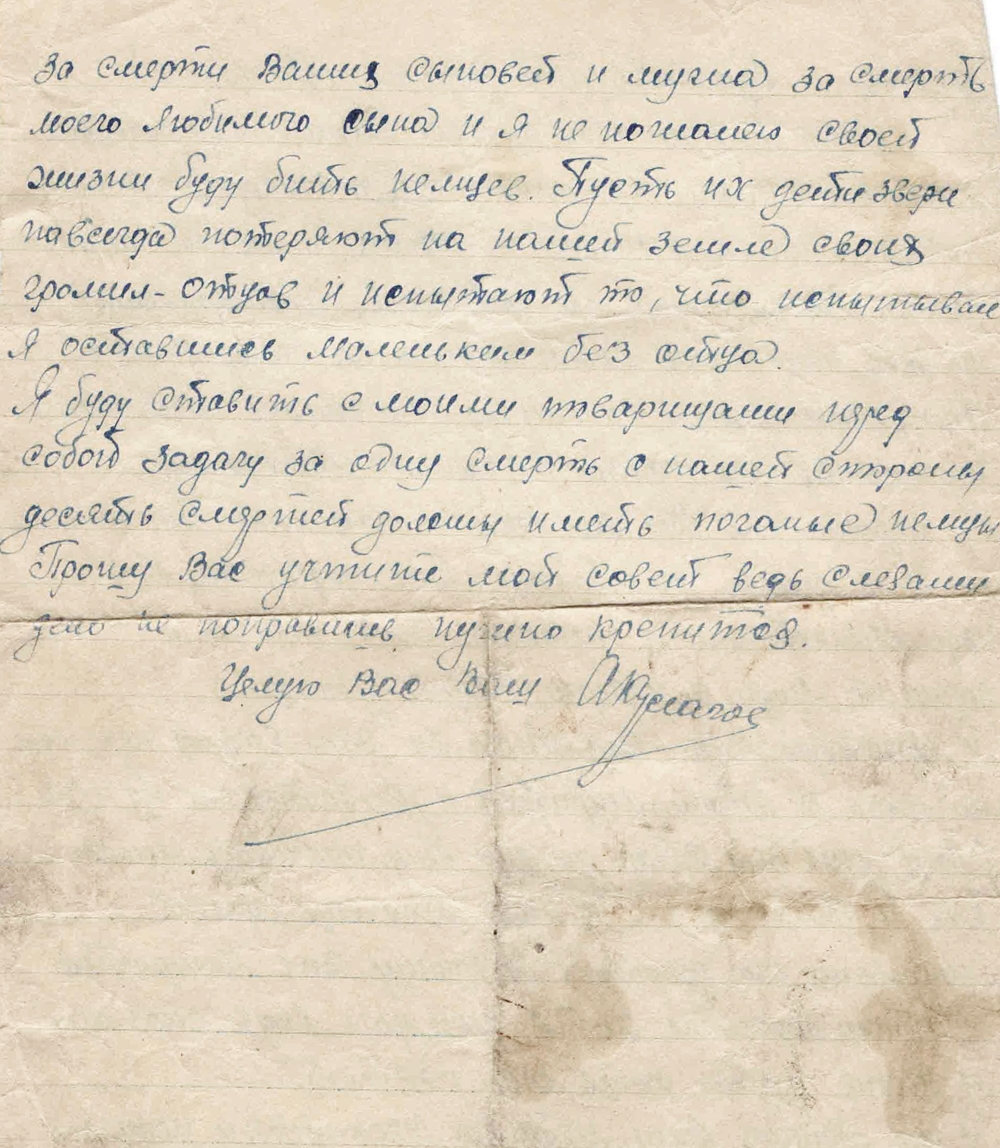 за смерти Ваших сыновей и мужа за смерть
моего любимого сына и я не пожалею своей
жизни буду бить немцев. Пусть их дети звери
навсегда потеряют на нашей земле своих
громил-отцов и испытают то, что испытывал
я оставшись маленьким без отца.
Я буду ставить с моими товарищами перед
собой задачу за одну смерть с нашей стороны
десять смертей должны иметь поганые немцы
Прошу Вас учтите мой совет ведь слезами
дело не поправишь нужно крепится.
Целую Вас Ваш